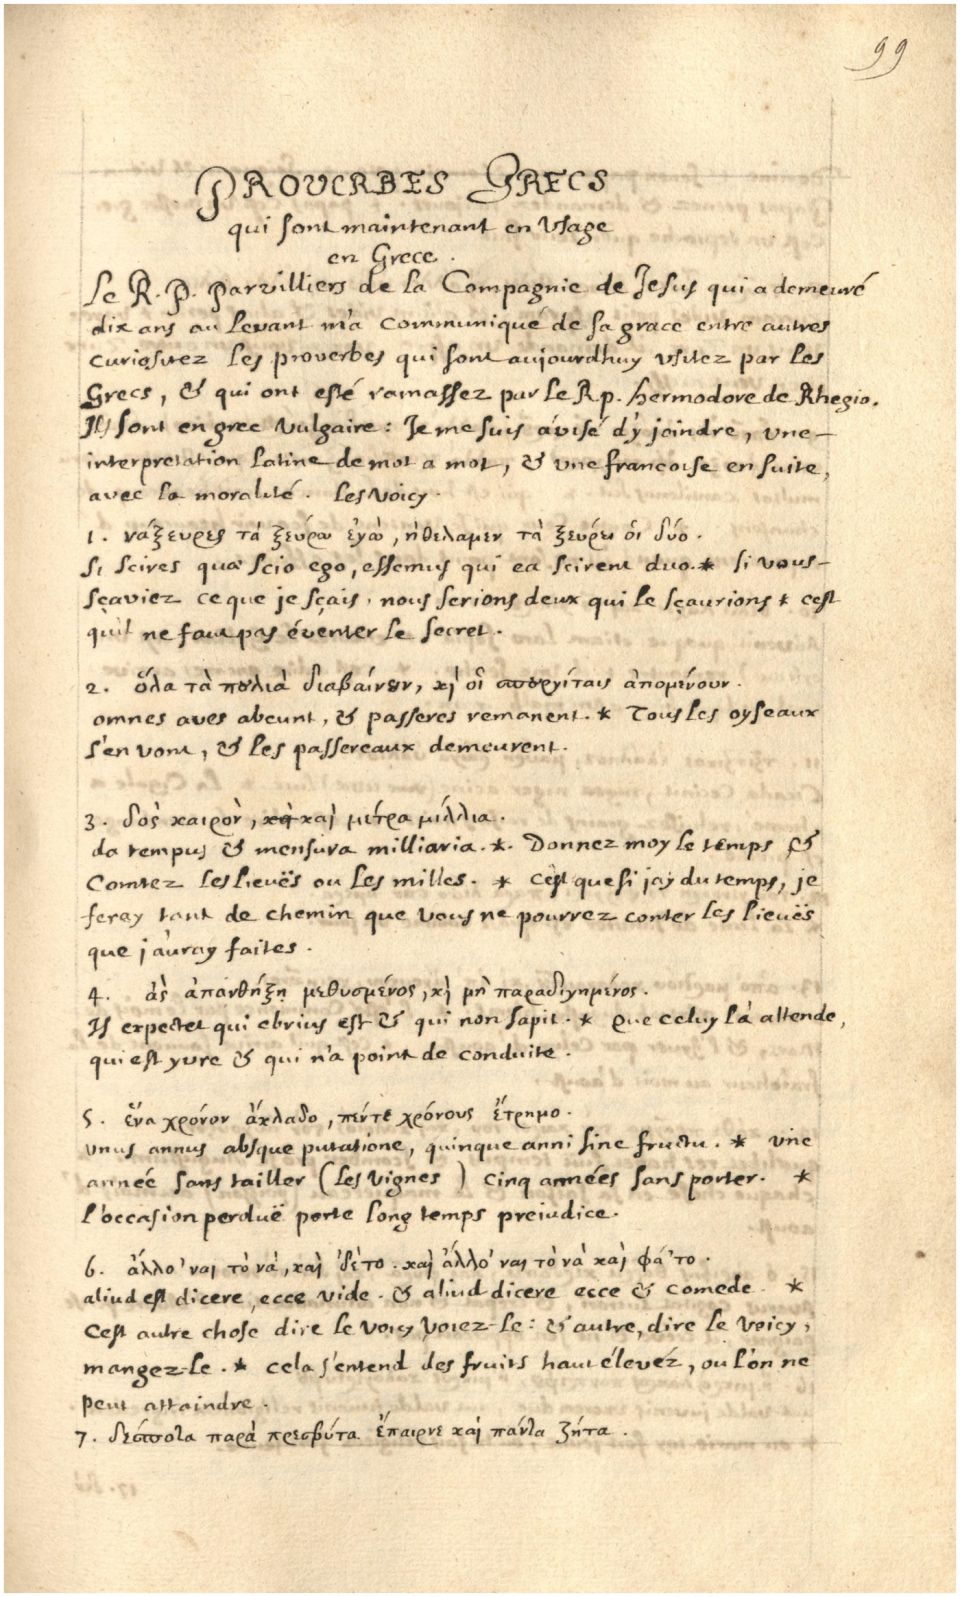 99
PROVERBES GRECS
qui sont maintenant en Usage
en Grece.
Le R. P. Parvilliers de la Compagnie de Jesus qui a demeuré
dix ans au levant m'a communiqué de sa grace entre autres
curiositez les proverbes qui sont aujourdhuy usitez par les
Grecs, & qui ont esté ramassez par le R p. hermodore de Rhegio.
Ils sont en grec vulgaire: Je me suis avisé d'y joindre, une
interpretation latine de mot a mot, & une francoise en suite,
avec la moralité. les voicy.
1. νάξευρες τά ξεύρω ἐγώ, ἠθέλαμεν τὰ ξεύρει οἱ δύο.
si scires quæ scio ego, essemus qui ea scirent duo. * si vous
sçaviez ce que je sçais, nous serions deux qui le sçaurions * cest
quil ne faut pas éventer le secret.
2. ὅλα τὰ πουλιὰ διαβαίνουν, κὶ οἱ σπουργίταις ἀπομένουν.
omnes aves abeunt, & passeres remanent. * Tous les oyseaux
s'en vont, & les passereaux demeurent.
3. δος καιρὸν, καὶ μέτρα μίλλια.
da tempus & mensura milliaria. * Donnez moy le temps &
Comtez les lieuës ou les milles. * c'est que si jay du temps, je
feray tant de chemin que vous ne pourrez conter les lieuës
que j'auray faites.
4. ἂς ἀπανθήξῃ μεθυσμένος, κὶ μὴ παραδιγημένος.
Is expectet qui ebrius est & qui non sapit. * que celuy la attende,
qui est yvre & qui n'a point de conduite.
5. ἕνα χρόνον ἄκλαδο, πέντε χρόνους ἔτρημο.
unus annus absque putatione, quinque anni sine fructu. * une
année sans tailler (les vignes) cinq années sans porter. *
l'occasion perduë porte long temps prejudice.
6. ἄλλο' ναι το νά, καὶ ἰδέτο. καὶ ἄλλο' ναι το νὰ καὶ φά'το.
aliud est dicere, ecce vide. & aliud dicere ecce & comede. *
Cest autre chose dire le voicy voiez-le: & autre, dire le voicy,
mangez-le. * cela s'entend des fruits haut élevez, ou l'on ne
peut attaindre.
7. δεσποτα παρὰ πρεσβύτα ἔπαιρνε καὶ πάντα ζήτα.